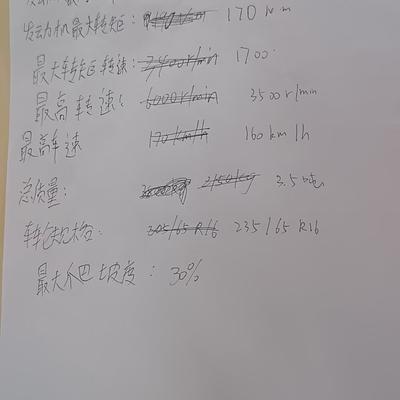 发动机最大转矩: 170 N·m
最大转矩转速: 2400r/min 1700
最高转速: 6000r/min 3500r/min
最高车速 170km/h 160km/h
总质量: 2150kg 3.5吨
轮胎规格: 305/65 R16 235/65 R16
最大爬坡度: 30%